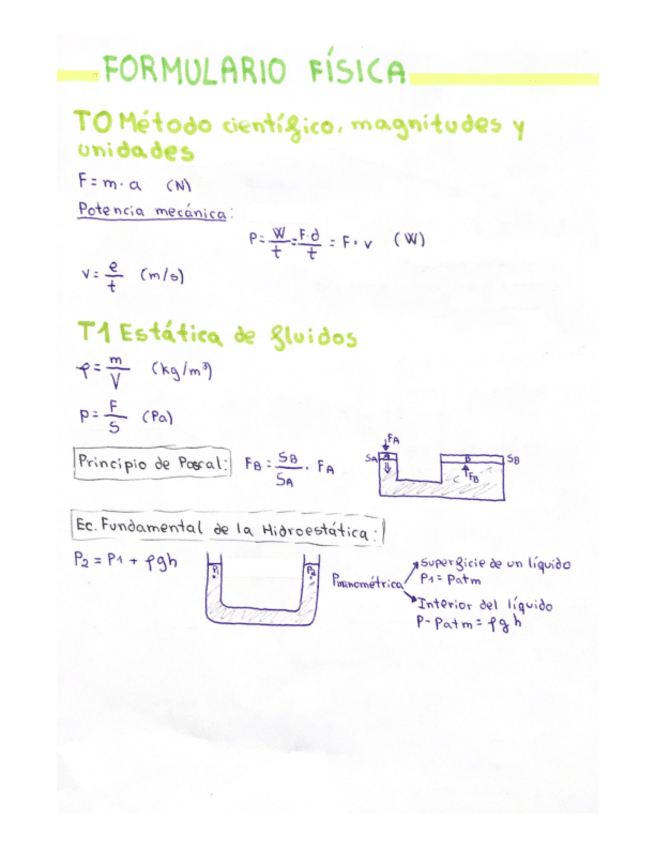 FORMULARIO FÍSICA
T0 Método científico, magnitudes y
unidades
F = m · a (N)
Potencia mecánica:
P = W/t = F·d/t = F · v (W)
v = e/t (m/s)
T1 Estática de fluidos
ρ = m/V (kg/m³)
p = F/S (Pa)
Principio de Pascal: FB = SB/SA · FA
FA
SA A B SB
FB
Ec. Fundamental de la Hidroestática:
P2 = P1 + ρgh
P1 P2
Pmanométrica
Superficie de un líquido
P1 = Patm
Interior del líquido
P - Patm = ρgh